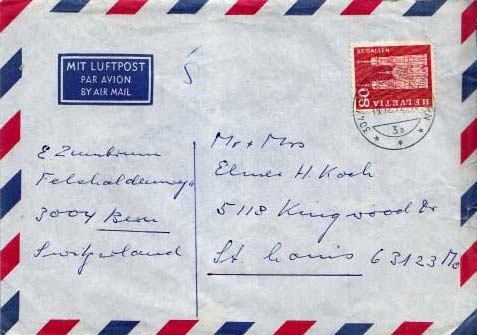 MIT LUFTPOST
PAR AVION
BY AIR MAIL
ST. GALLEN
HELVETIA
80
3a
E Zumbrunn
Felshaldenweg
3004 Bern
Switzerland
Mr + Mrs
Elmer H. Koch
5118 Kingwood Dr
St. Louis 63123 Mo